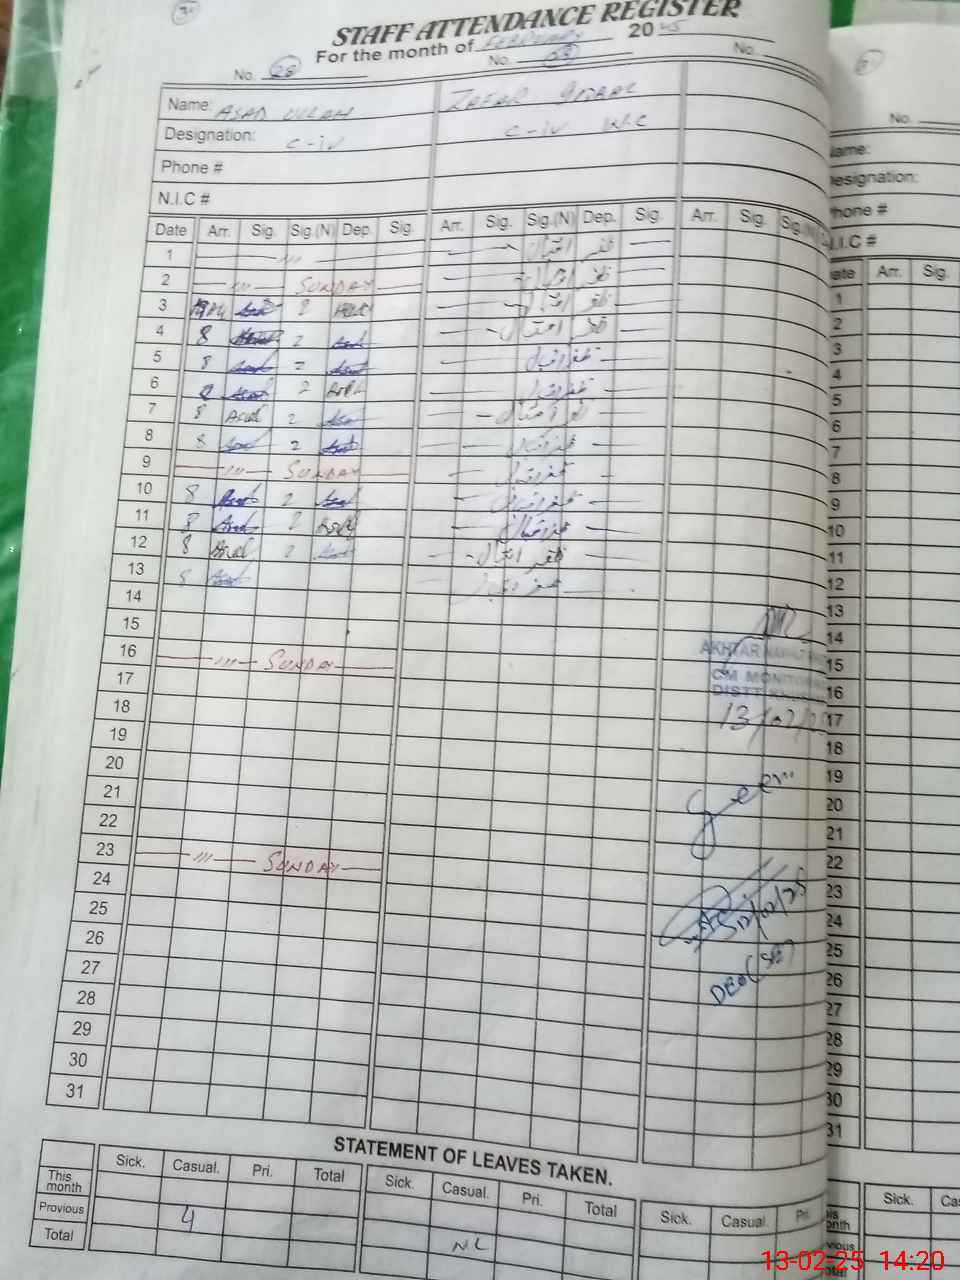 STAFF ATTENDANCE REGISTER
For the month of FEBRUARY 20
No. 28 No. No.
Name: ASAD ULLAH ZAFAR IQBAL
Designation: C-iv C-iv W.C
Phone #
N.I.C #
Date Arr. Sig. Sig.(N) Dep. Sig. Arr. Sig. Sig.(N) Dep. Sig. Arr. Sig. Sig.(N)
1 ظفر اقبال
2 SUNDAY ظفر اقبال
3 Asad 2 Asad ظفر اقبال
4 8 Asad 2 Asad ظفر اقبال
5 8 Asad 2 Asad ظفر اقبال
6 8 Asad 2 Asad ظفر اقبال
7 8 Asad 2 Asad ظفر اقبال
8 8 Asad 2 Asad ظفر اقبال
9 SUNDAY ظفر اقبال
10 8 Asad 2 Asad ظفر اقبال
11 8 Asad 2 Asad ظفر اقبال
12 8 Asad 2 Asad ظفر اقبال
13 8 Asad ظفر اقبال
14
15
16 SUNDAY
17
18
19
20
21
22
23 SUNDAY
24
25
26
27
28
29
30
31
AKHTAR NAWAZ
CM MONITORING
DISTT
13/02/25
Seen
12/02/25
DEO (SE)
STATEMENT OF LEAVES TAKEN.
Sick. Casual. Pri. Total Sick. Casual. Pri. Total Sick. Casual. Pri.
This month
Provious 4
Total NIL
No.
Name:
Designation:
Phone #
N.I.C #
Date Arr. Sig.
1
2
3
4
5
6
7
8
9
10
11
12
13
14
15
16
17
18
19
20
21
22
23
24
25
26
27
28
29
30
31
Sick.
13-02-25 14:20